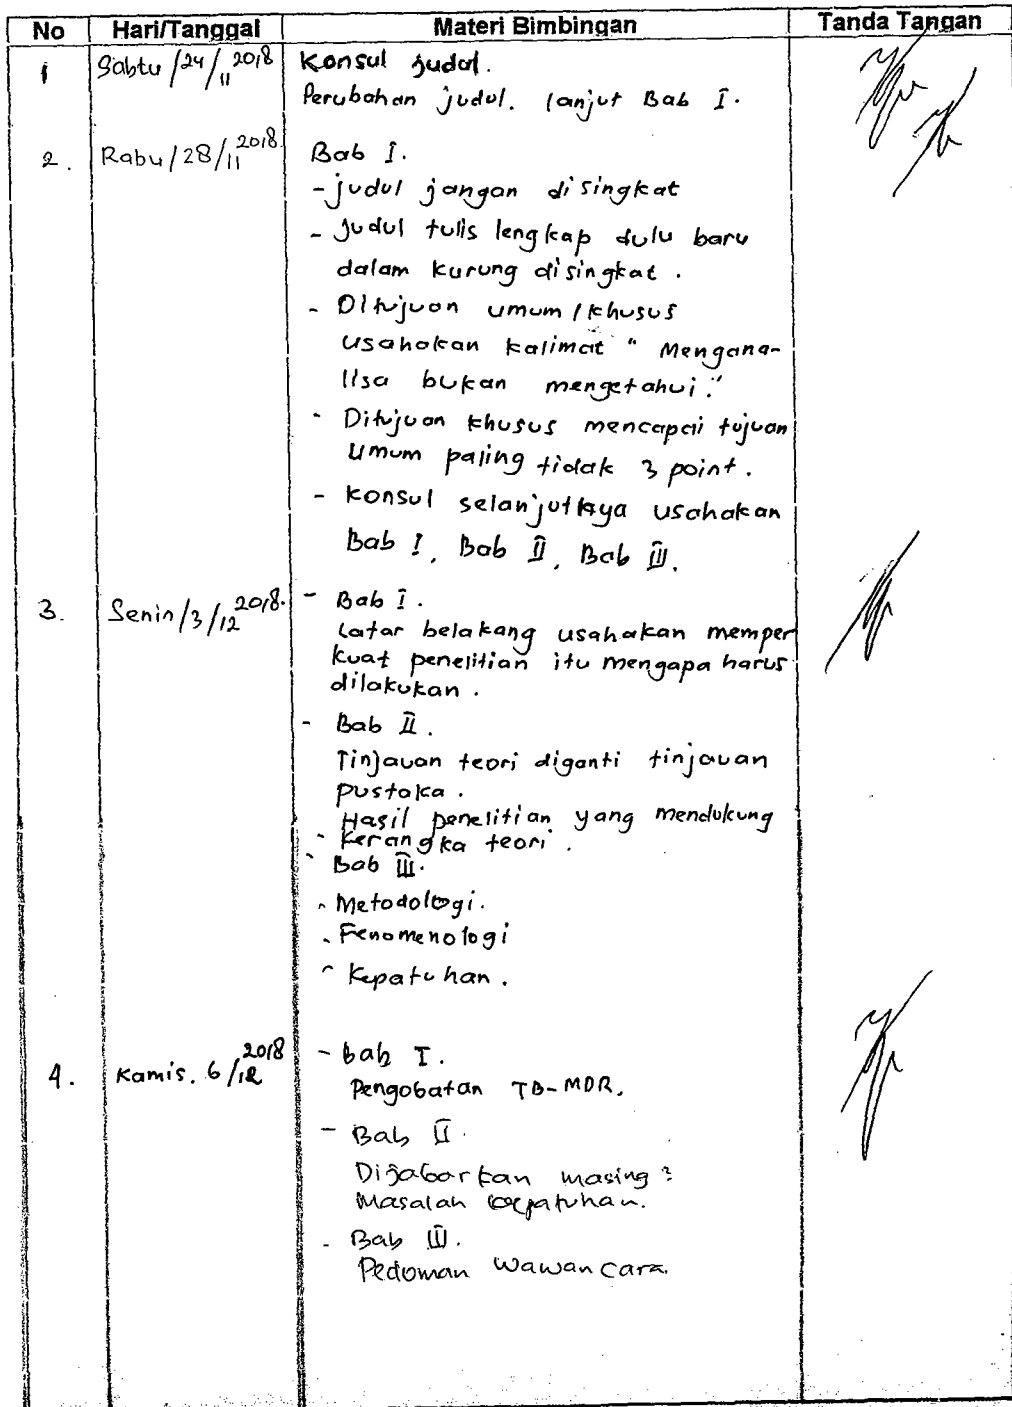 No Hari/Tanggal Materi Bimbingan Tanda Tangan
1 Sabtu /24/11 2018 Konsul judul.
Perubahan judul. lanjut Bab I.
2. Rabu/28/11 2018 Bab I.
- judul jangan disingkat
- Judul tulis lengkap dulu baru
dalam kurung disingkat.
- Ditujuan umum/khusus
usahakan kalimat "Mengana-
lisa bukan mengetahui."
- Ditujuan khusus mencapai tujuan
umum paling tidak 3 point.
- Konsul selanjutnya usahakan
Bab I, Bab II, Bab III.
3. Senin/3/12 2018. - Bab I.
Latar belakang usahakan memper
kuat penelitian itu mengapa harus
dilakukan.
- Bab II.
Tinjauan teori diganti tinjauan
pustaka.
Hasil penelitian yang mendukung
- Kerangka teori.
- Bab III.
- Metodologi.
- Fenomenologi
- Kepatuhan.
4. Kamis. 6/12 2018 - bab I.
Pengobatan TB-MDR.
- Bab II.
Dijabarkan masing2
Masalah kepatuhan.
- Bab III.
Pedoman Wawancara.